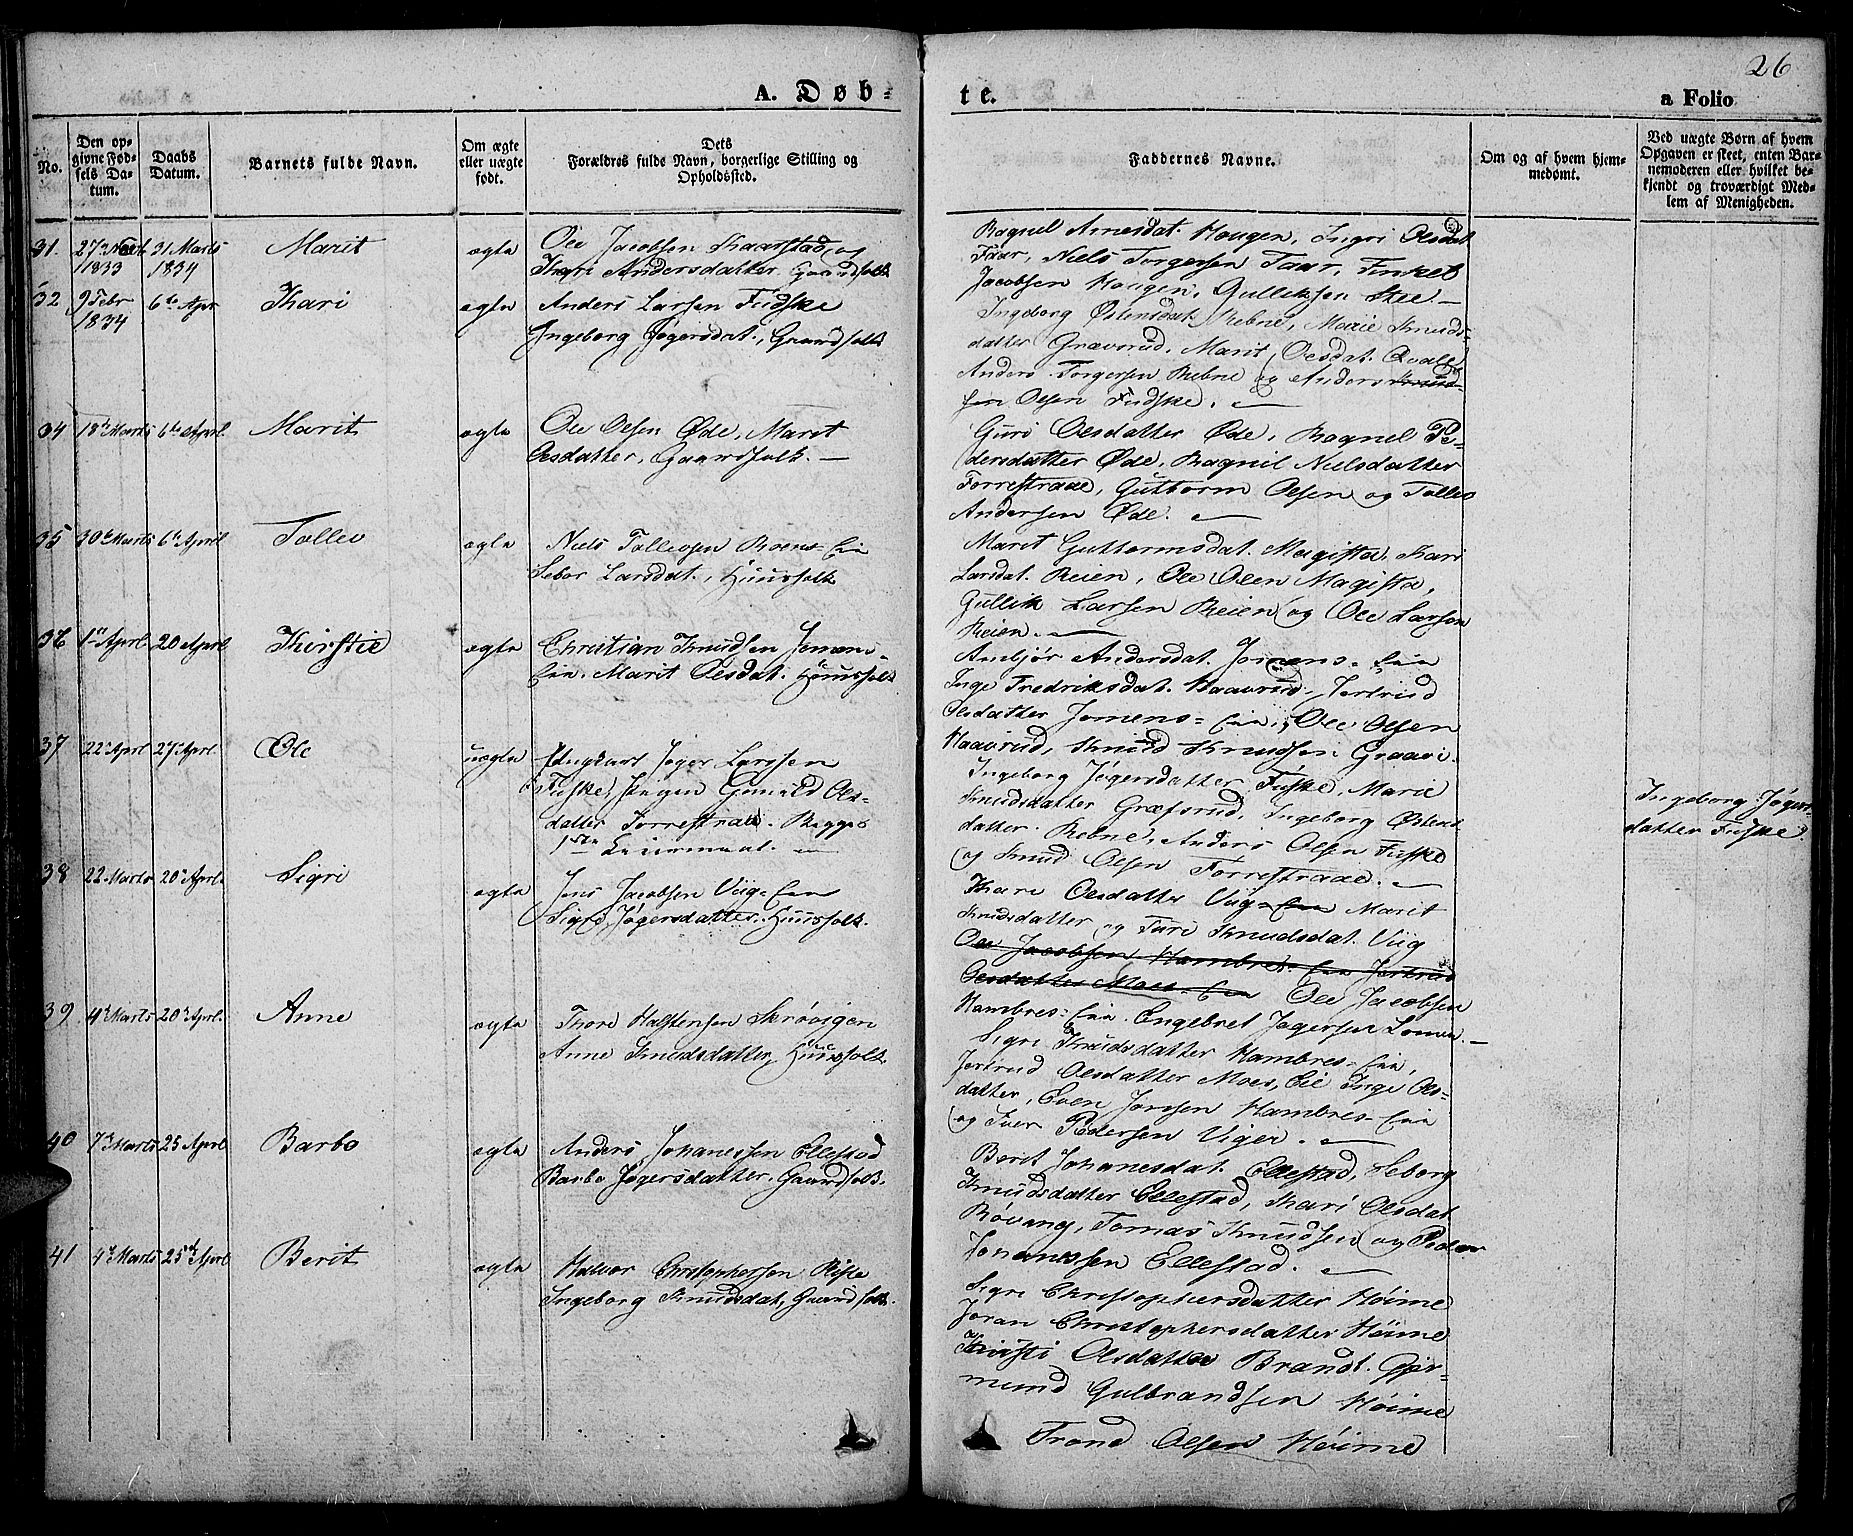 26
A. Døb-
te.
a Folio
No.
Den op-
givne Fød-
sels Da-
tum.
Daabs
Datum.
Barnets fulde Navn.
Om ægte
eller uægte
født.
Dets
Forældres fulde Navn, borgerlige Stilling og
Opholdssted.
Faddernes Navne.
Om og af hvem hjem-
medømt.
Ved uægte Børn af hvem
Opgaven er skeet, enten Bar-
nemoderen eller hvilket be-
kjendt og troværdigt Med-
lem af Menigheden.
31. 27de 31 Marts Marit ægte Ole Jacobsen Kaarstad og
1833 1834 Kari Andersdatter, Gaardfolk
Ragnel Arnesdat. Hougen, Ingri Olsdat
Faar, Niels Torgersen Faar,
Jacobsen Hougen, Gulliksen
32 9 Febr 6te Apr Kari ægte Anders Larsen Fudske
1834 Ingeborg Jøgersdat., Gaardfolk
Ingeborg Østensdat. Rebne, Marie Knuds-
datter Grævsrud, Marit Olsdat. Qvalle
Anders Torgersen Rebne og Anders Knud-
sen Olsen Fudske.
34 18de Marts 6te April. Marit ægte Ole Olsen Øde, Marit
Olsdatter, Gaardfolk.
Guri Olsdatter Øde, Ragnel Pe-
dersdatter Øde, Ragnil Nielsdatter
Forrestraae, Guttorm Olsen og Tollev
Andersen Øde.
35 30te Marts 6te April Tollev ægte Niels Tollevsen Roens-Eie
Sebor Larsdat., Huusfolk
Marit Guttormsdat. Magista, Kari
Larsdat. Reien, Ole Olen Magista,
Gullik Larsen Reien og Ole Larsen
Reien.
36 1ste April 20 April Kirstie ægte Christian Knudsen Jomen-
Eie. Marit Olsdat. Huusfolk
Ambjør Andersdat. Jomens-Eie
Inge Fredriksdat. Haavrud, Jertrud
Olsdatter Jomens-Eie, Ole Olsen
Haavrud, Knud Knudsen Graavi.
37 22de April 27de April. Ole uægte Ungkarl Jøger Larsen
Fuske, pigen Gunild Ols-
datter Forrestraae. Begges
1ste Leiermaal.
Ingeborg Jøgersdatter Fuske, Marie
Knudsdatter Græfsrud, Ingeborg Østens
datter Rebne, Anders Olsen Fuske
og Knud Olsen Forrestraae.
Ingeborg Jøgers-
datter Fuske.
38 22 Marts 20de April. Sigri ægte Jens Jacobsen Viig-Eie
Sigri Jøgersdatter, Huusfolk.
Kari Olsdatter Viig-Eie Marit
Knudsdatter og Turi Knudsdat. Viig
Ole Jacobsen Hambres-Eie Jertrud
Olsdatter Moes-Eie Ole Jacobsen
Hambres-Eie. Engebret Jøgersen Lomen.
39 4de Marts 20de April. Anne ægte Thore Halstensen Skrøvigen
Anne Knudsdatter Huusfolk
Sigri Knudsdatter Hambres-Eie,
Jertrud Olsdatter Moes, Eie Inge Ols-
datter, Even Jonsen Hambres-Eie
og Iver Pedersen Viger.
40 7de Marts 25 April Barbo ægte Anders Johanessen Ellestad
Barbo Jøgersdatter. Gaardfolk.
Berit Johanesdat. Ellestad, Seborg
Knudsdatter Ellestad, Kari Olsdat
Røvang, Tomas Knudsen og Peder
Johannssen Ellestad.
41 4de Marts 25de April Berit ægte Halvor Christophersen Riste
Ingeborg Knudsdat, Gaardfolk.
Sigri Christophersdatter Høime
Joran Christophersdatter Høime
Kirsti Olsdatter Brandt. Gjer-
mund Gulbrandsen Høime
Trond Olsen Høime